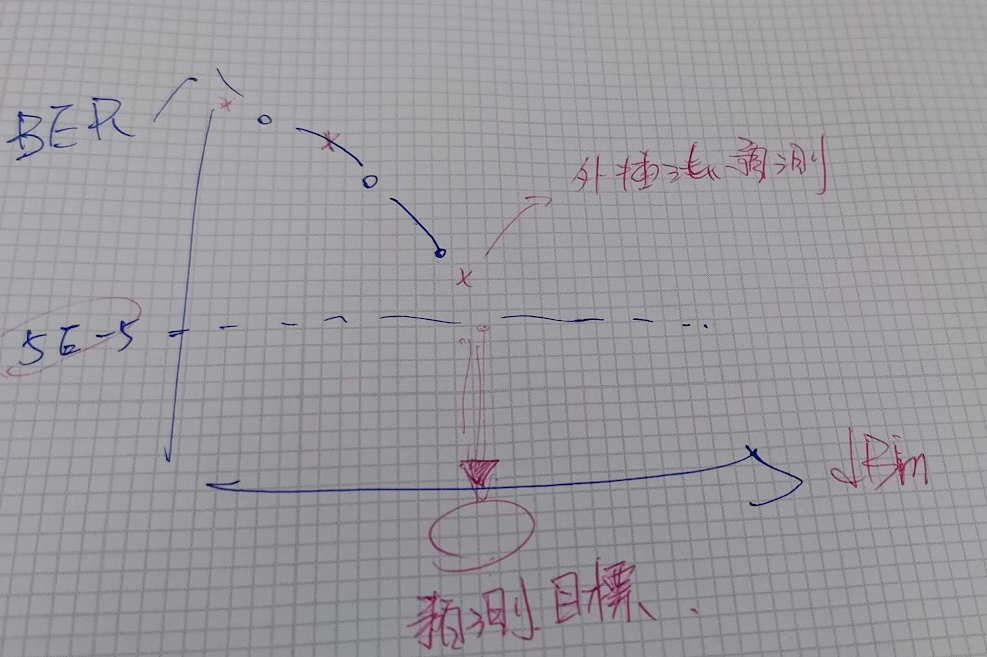 BER
外插法預測
5E-5
dBm
預測目標